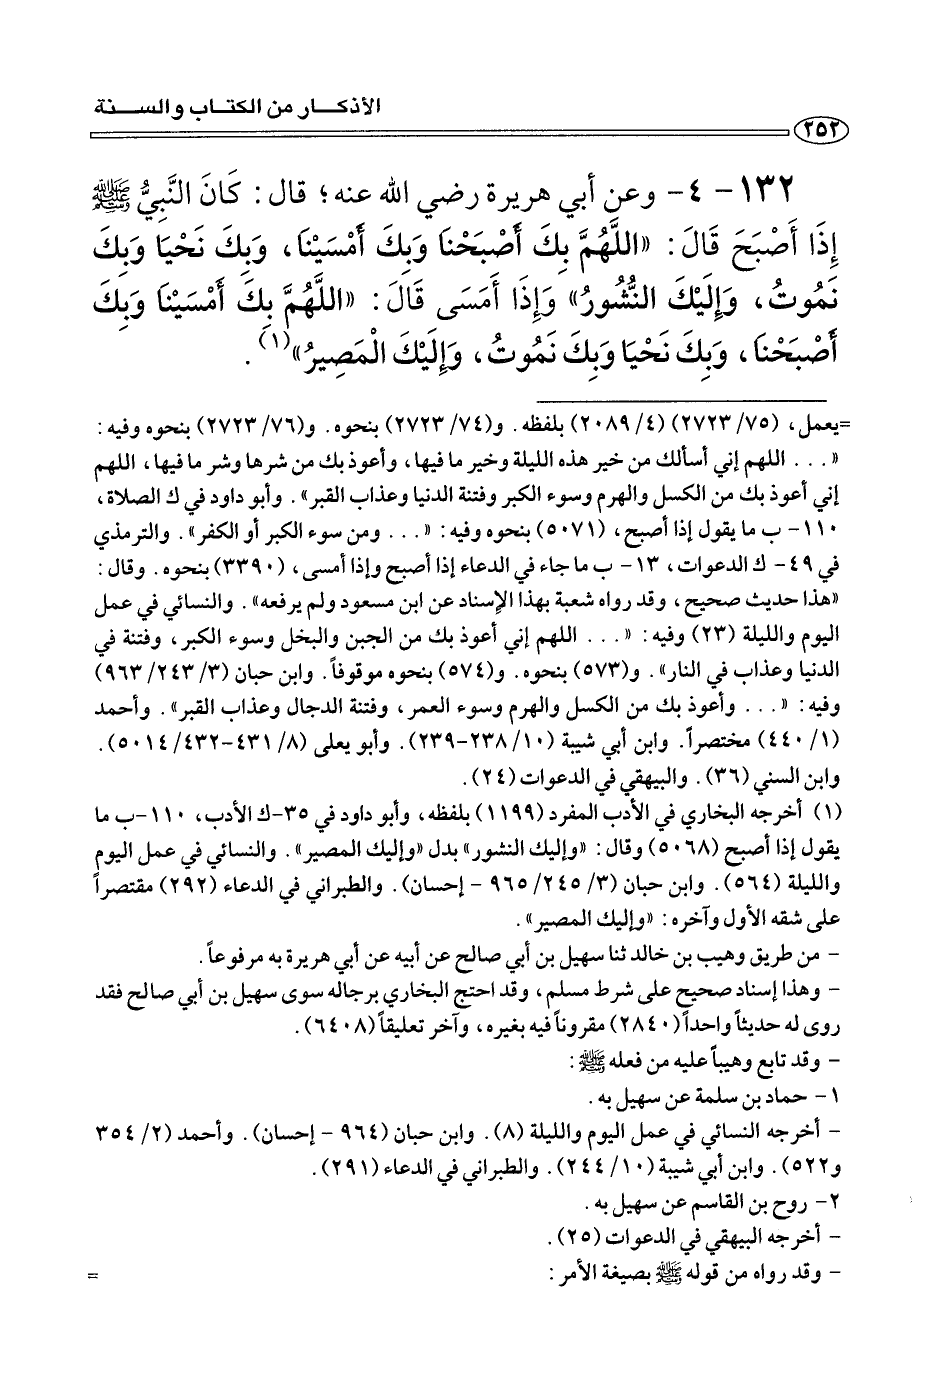 الأذكـــار من الكتـاب والســـنة
٢٥٢
١٣٢- ٤- وعن أبي هريرة رضي الله عنه؛ قال: كَانَ النَّبِيُّ ﷺ
إِذَا أَصْبَحَ قَالَ: «اللَّهُمَّ بِكَ أَصْبَحْنَا وَبِكَ أَمْسَيْنَا، وَبِكَ نَحْيَا وَبِكَ
نَمُوتُ، وَإِلَيْكَ النُّشُورُ» وَإِذَا أَمَسَى قَالَ: «اللَّهُمَّ بِكَ أَمْسَيْنَا وَبِكَ
أَصْبَحْنَا، وَبِكَ نَحْيَا وَبِكَ نَمُوتُ، وَإِلَيْكَ الْمَصِيرُ»(١).
=يعمل، (٧٥/ ٢٧٢٣) (٤/ ٢٠٨٩) بلفظه. و(٧٤/ ٢٧٢٣) بنحوه. و(٧٦/ ٢٧٢٣) بنحوه وفيه:
«... اللهم إني أسألك من خير هذه الليلة وخير ما فيها، وأعوذ بك من شرها وشر ما فيها، اللهم
إني أعوذ بك من الكسل والهرم وسوء الكبر وفتنة الدنيا وعذاب القبر». وأبو داود في ك الصلاة،
١١٠- ب ما يقول إذا أصبح، (٥٠٧١) بنحوه وفيه: «... ومن سوء الكبر أو الكفر». والترمذي
في ٤٩- ك الدعوات، ١٣- ب ما جاء في الدعاء إذا أصبح وإذا أمسى، (٣٣٩٠) بنحوه. وقال:
«هذا حديث صحيح، وقد رواه شعبة بهذا الإسناد عن ابن مسعود ولم يرفعه». والنسائي في عمل
اليوم والليلة (٢٣) وفيه: «... اللهم إني أعوذ بك من الجبن والبخل وسوء الكبر، وفتنة في
الدنيا وعذاب في النار». و(٥٧٣) بنحوه. و(٥٧٤) بنحوه موقوفاً. وابن حبان (٣/ ٢٤٣/ ٩٦٣)
وفيه: «... وأعوذ بك من الكسل والهرم وسوء العمر، وفتنة الدجال وعذاب القبر». وأحمد
(١/ ٤٤٠) مختصراً. وابن أبي شيبة (١٠/ ٢٣٨-٢٣٩). وأبو يعلى (٨/ ٤٣١-٤٣٢/ ٥٠١٤).
وابن السني (٣٦). والبيهقي في الدعوات (٢٤).
(١) أخرجه البخاري في الأدب المفرد (١١٩٩) بلفظه، وأبو داود في ٣٥-ك الأدب، ١١٠-ب ما
يقول إذا أصبح (٥٠٦٨) وقال: «وإليك النشور» بدل «وإليك المصير». والنسائي في عمل اليوم
والليلة (٥٦٤). وابن حبان (٣/ ٢٤٥/ ٩٦٥ - إحسان). والطبراني في الدعاء (٢٩٢) مقتصراً
على شقه الأول وآخره: «وإليك المصير».
- من طريق وهيب بن خالد ثنا سهيل بن أبي صالح عن أبيه عن أبي هريرة به مرفوعاً.
- وهذا إسناد صحيح على شرط مسلم، وقد احتج البخاري برجاله سوى سهيل بن أبي صالح فقد
روى له حديثاً واحداً (٢٨٤٠) مقروناً فيه بغيره، وآخر تعليقاً (٦٤٠٨).
- وقد تابع وهيباً عليه من فعله ﷺ:
١- حماد بن سلمة عن سهيل به.
- أخرجه النسائي في عمل اليوم والليلة (٨). وابن حبان (٩٦٤ - إحسان). وأحمد (٢/ ٣٥٤
و٥٢٢). وابن أبي شيبة (١٠/ ٢٤٤). والطبراني في الدعاء (٢٩١).
٢- روح بن القاسم عن سهيل به.
- أخرجه البيهقي في الدعوات (٢٥).
- وقد رواه من قوله ﷺ بصيغة الأمر: =